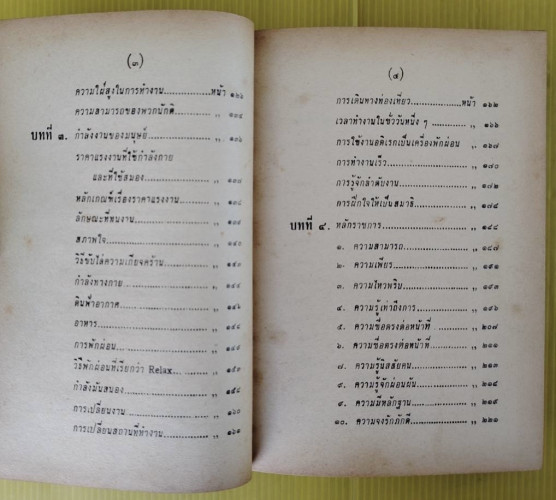 (๓)
ความใฝ่สูงในการทำงาน..............หน้า ๑๒๖
ความสามารถของพวกนักคิด.............. ,, ๑๓๔
บทที่ ๓. กำลังงานของมนุษย์.............. ,, ๑๓๖
ราคาแรงงานที่ใช้กำลังกาย
และที่ใช้สมอง.............. ,, ๑๓๗
หลักเกณฑ์เรื่องราคาแรงงาน.............. ,,
ลักษณะที่ทนงาน.............. ,,
สภาพใจ.............. ,, ๑๔๖
วิธีขับไล่ความเกียจคร้าน.............. ,, ๑๔๓
กำลังทางกาย.............. ,, ๑๔๔
ดินฟ้าอากาศ.............. ,, ๑๔๖
อาหาร.............. ,, ๑๔๘
การพักผ่อน.............. ,, ๑๔๙
วิธีพักผ่อนที่เรียกว่า Relax... ,, ๑๕๓
กำลังมันสมอง.............. ,, ๑๕๘
การเปลี่ยนงาน.............. ,, ๑๖๐
การเปลี่ยนสถานที่ทำงาน.............. ,, ๑๖๑
(๔)
การเดินทางท่องเที่ยว..............หน้า ๑๖๒
เวลาทำงานในชั่ววันหนึ่ง ๆ.............. ,, ๑๖๖
การใช้งานอดิเรกเป็นเครื่องพักผ่อน ,, ๑๖๗
การทำงานเร็ว.............. ,, ๑๗๐
การรู้จักลำดับงาน.............. ,, ๑๗๒
การฝึกใจให้เป็นสมาธิ.............. ,, ๑๗๔
บทที่ ๔. หลักราชการ.............. ,, ๑๘๔
๑. ความสามารถ.............. ,, ๑๘๗
๒. ความเพียร.............. ,, ๑๙๑
๓. ความไหวพริบ.............. ,, ๑๙๓
๔. ความรู้เท่าถึงการ.............. ,, ๑๙๖
๕. ความซื่อตรงต่อหน้าที่ .............. ,, ๒๐๗
๖. ความซื่อตรงต่อหน้าที่.............. ,, ๒๑๑
๗. ความรู้นิสสัยคน.............. ,, ๒๑๓
๙. ความรู้จักผ่อนผัน.............. ,, ๒๑๔
๙. ความมีหลักฐาน.............. ,, ๒๑๙
๑๐. ความจงรักภักดี.............. ,, ๒๒๑